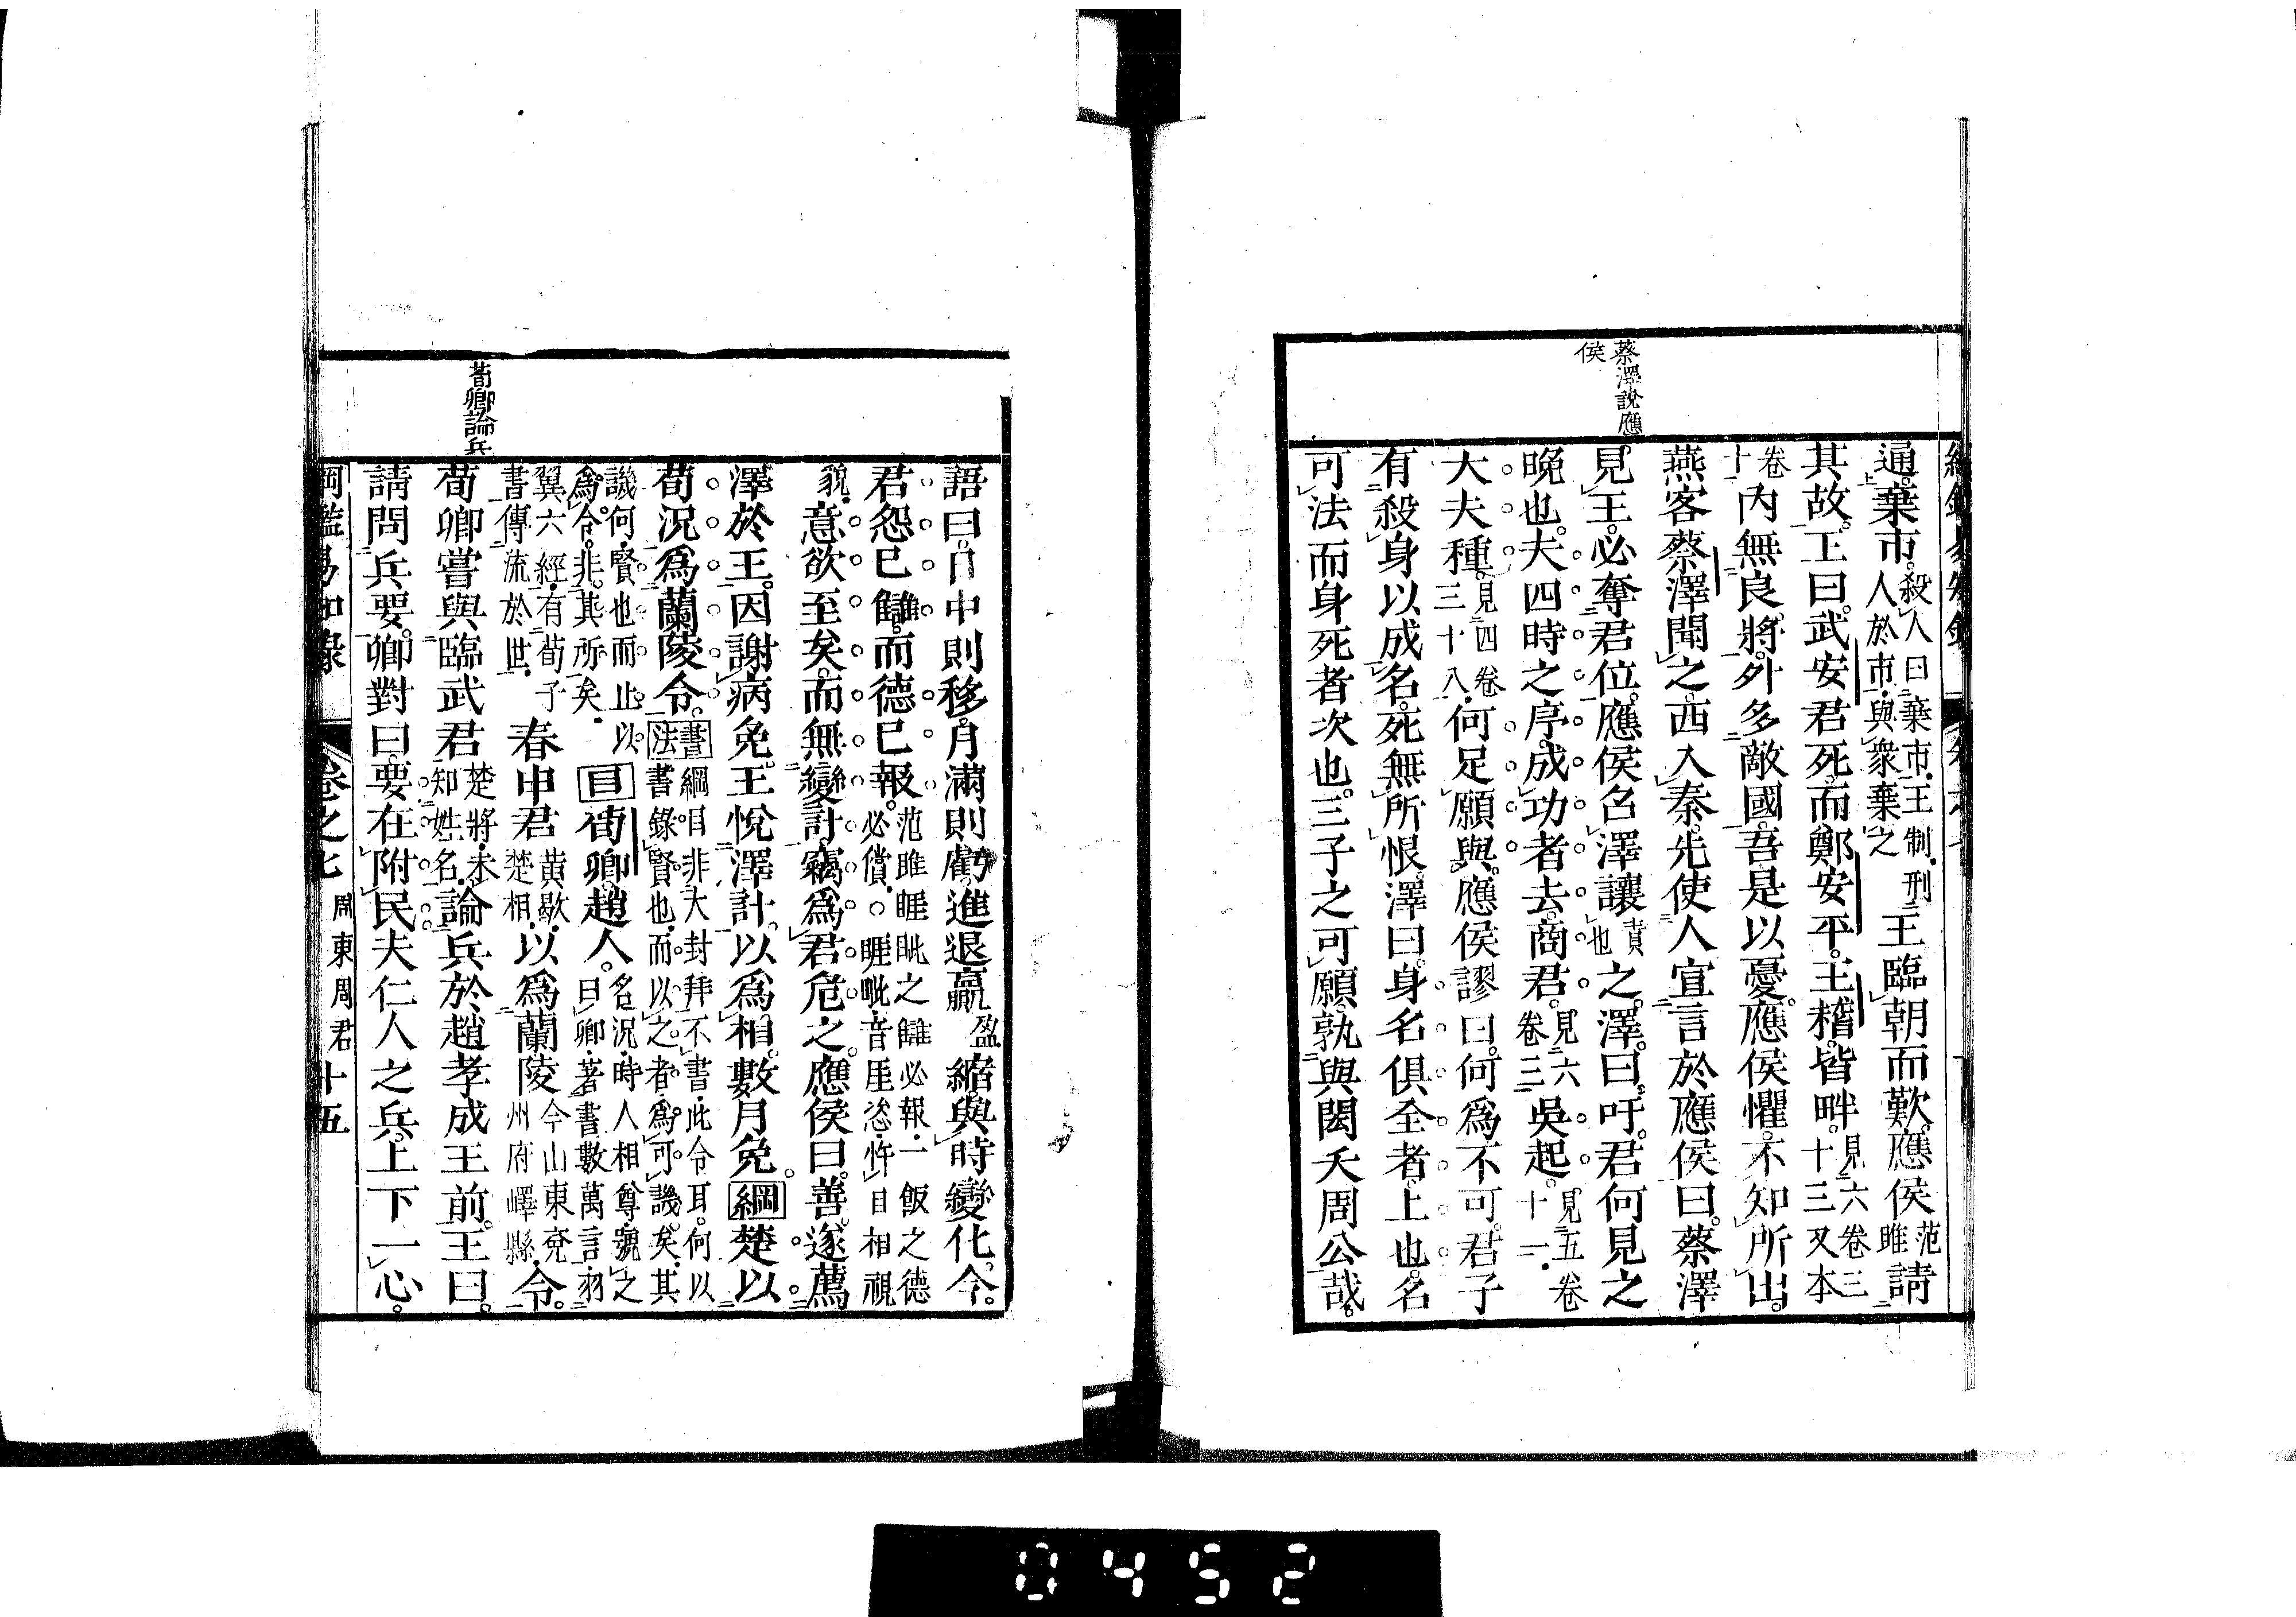 蔡澤說應
侯
通。棄市。殺人曰棄市。王制。刑人於市。與衆棄之王臨朝而歎。應侯范雎請
其故。王曰。武安君死。而鄭安平。王稽。皆畔。見六卷三十三又本
卷十內無良將。外多敵國。吾是以憂。應侯懼。不知所出。
燕客蔡澤聞之。西入秦。先使人宣言於應侯曰。蔡澤
見王。必奪君位。應侯召澤讓責也之。澤曰。吁。君何見之
晚也。夫四時之序。成功者去。商君。見六卷三吳起。見五卷十一
大夫種。見四卷三十八何足願與。應侯謬曰。何爲不可。君子
有殺身以成名。死無所恨。澤曰。身名俱全者。上也。名
可法而身死者次也。三子之可願。孰與閎夭周公哉。
語曰。日中則移。月滿則虧。進退贏盈縮。與時變化。今
君怨已讎。而德已報。范雎睚眦之讎必報。一飯之德必償。睚眦。音厓恣。忤目相視
貌。意欲至矣。而無變計。竊爲君危之。應侯曰。善。遂薦
澤於王。因謝病免。王悅澤計。以爲相。數月免。綱楚以
荀況爲蘭陵令。書法綱目非大封拜不書。此令耳。何以書。錄賢也。而以之者。爲可譏矣。其
譏何。賢也而止以爲令。非其所矣。目荀卿。趙人。名況。時人相尊。號之曰卿。著書數萬言。羽
翼六經。有荀子書傳流於世。春申君黃歇。楚相以爲蘭陵今山東兗州府嶧縣令。
荀卿嘗與臨武君楚將。未知姓名。論兵於趙孝成王前。王曰。
請問兵要。卿對曰。要在附民。夫仁人之兵。上下一心。
荀卿論兵
綱鑑易知錄　卷之七　周東周君　十五
0452